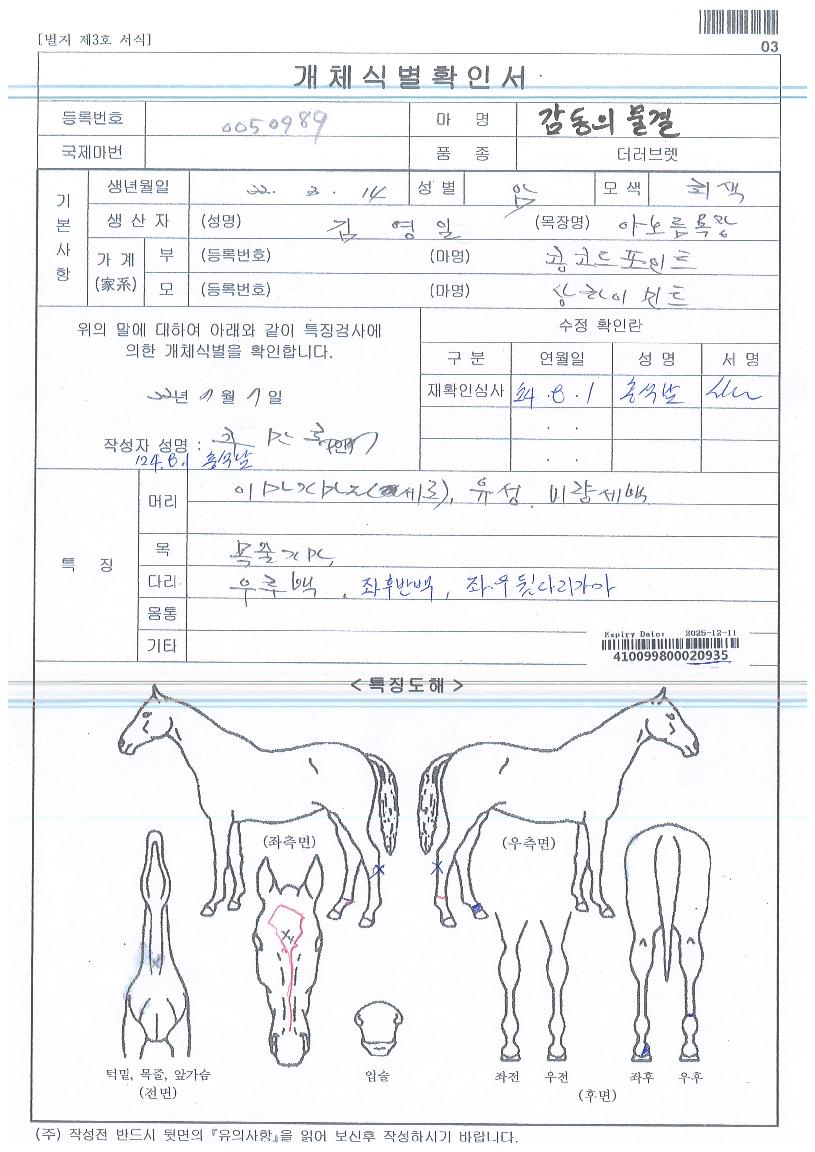 [별지 제3호 서식]
03
개체식별확인서
등록번호 0050989 마 명 감동의 물결
국제마번 품 종 더러브렛
기본사항
생년월일 22. 3. 14 성 별 암 모 색 회색
생 산 자 (성명) 김영일 (목장명)
가 계 (家系) 부 (등록번호) (마명) 콩코드포인트
모 (등록번호) (마명)
위의 말에 대하여 아래와 같이 특징검사에
의한 개체식별을 확인합니다.
수정 확인란
구 분 연월일 성 명 서 명
22년 월 일
재확인심사 24.8.1 홍석날
작성자 성명 : (인)
24.8.1 홍석날
특 징
머리 유성, 비량세백
목 목줄가마,
다리 우후백, 좌후반백, 좌우뒷다리가마
몸통
기타
Expiry Date: 2025-12-11
410099800020935
< 특징도해 >
(좌측면) (우측면)
턱밑, 목줄, 앞가슴
(전면)
입술
좌전 우전 좌후 우후
(후면)
(주) 작성전 반드시 뒷면의 『유의사항』을 읽어 보신후 작성하시기 바랍니다.